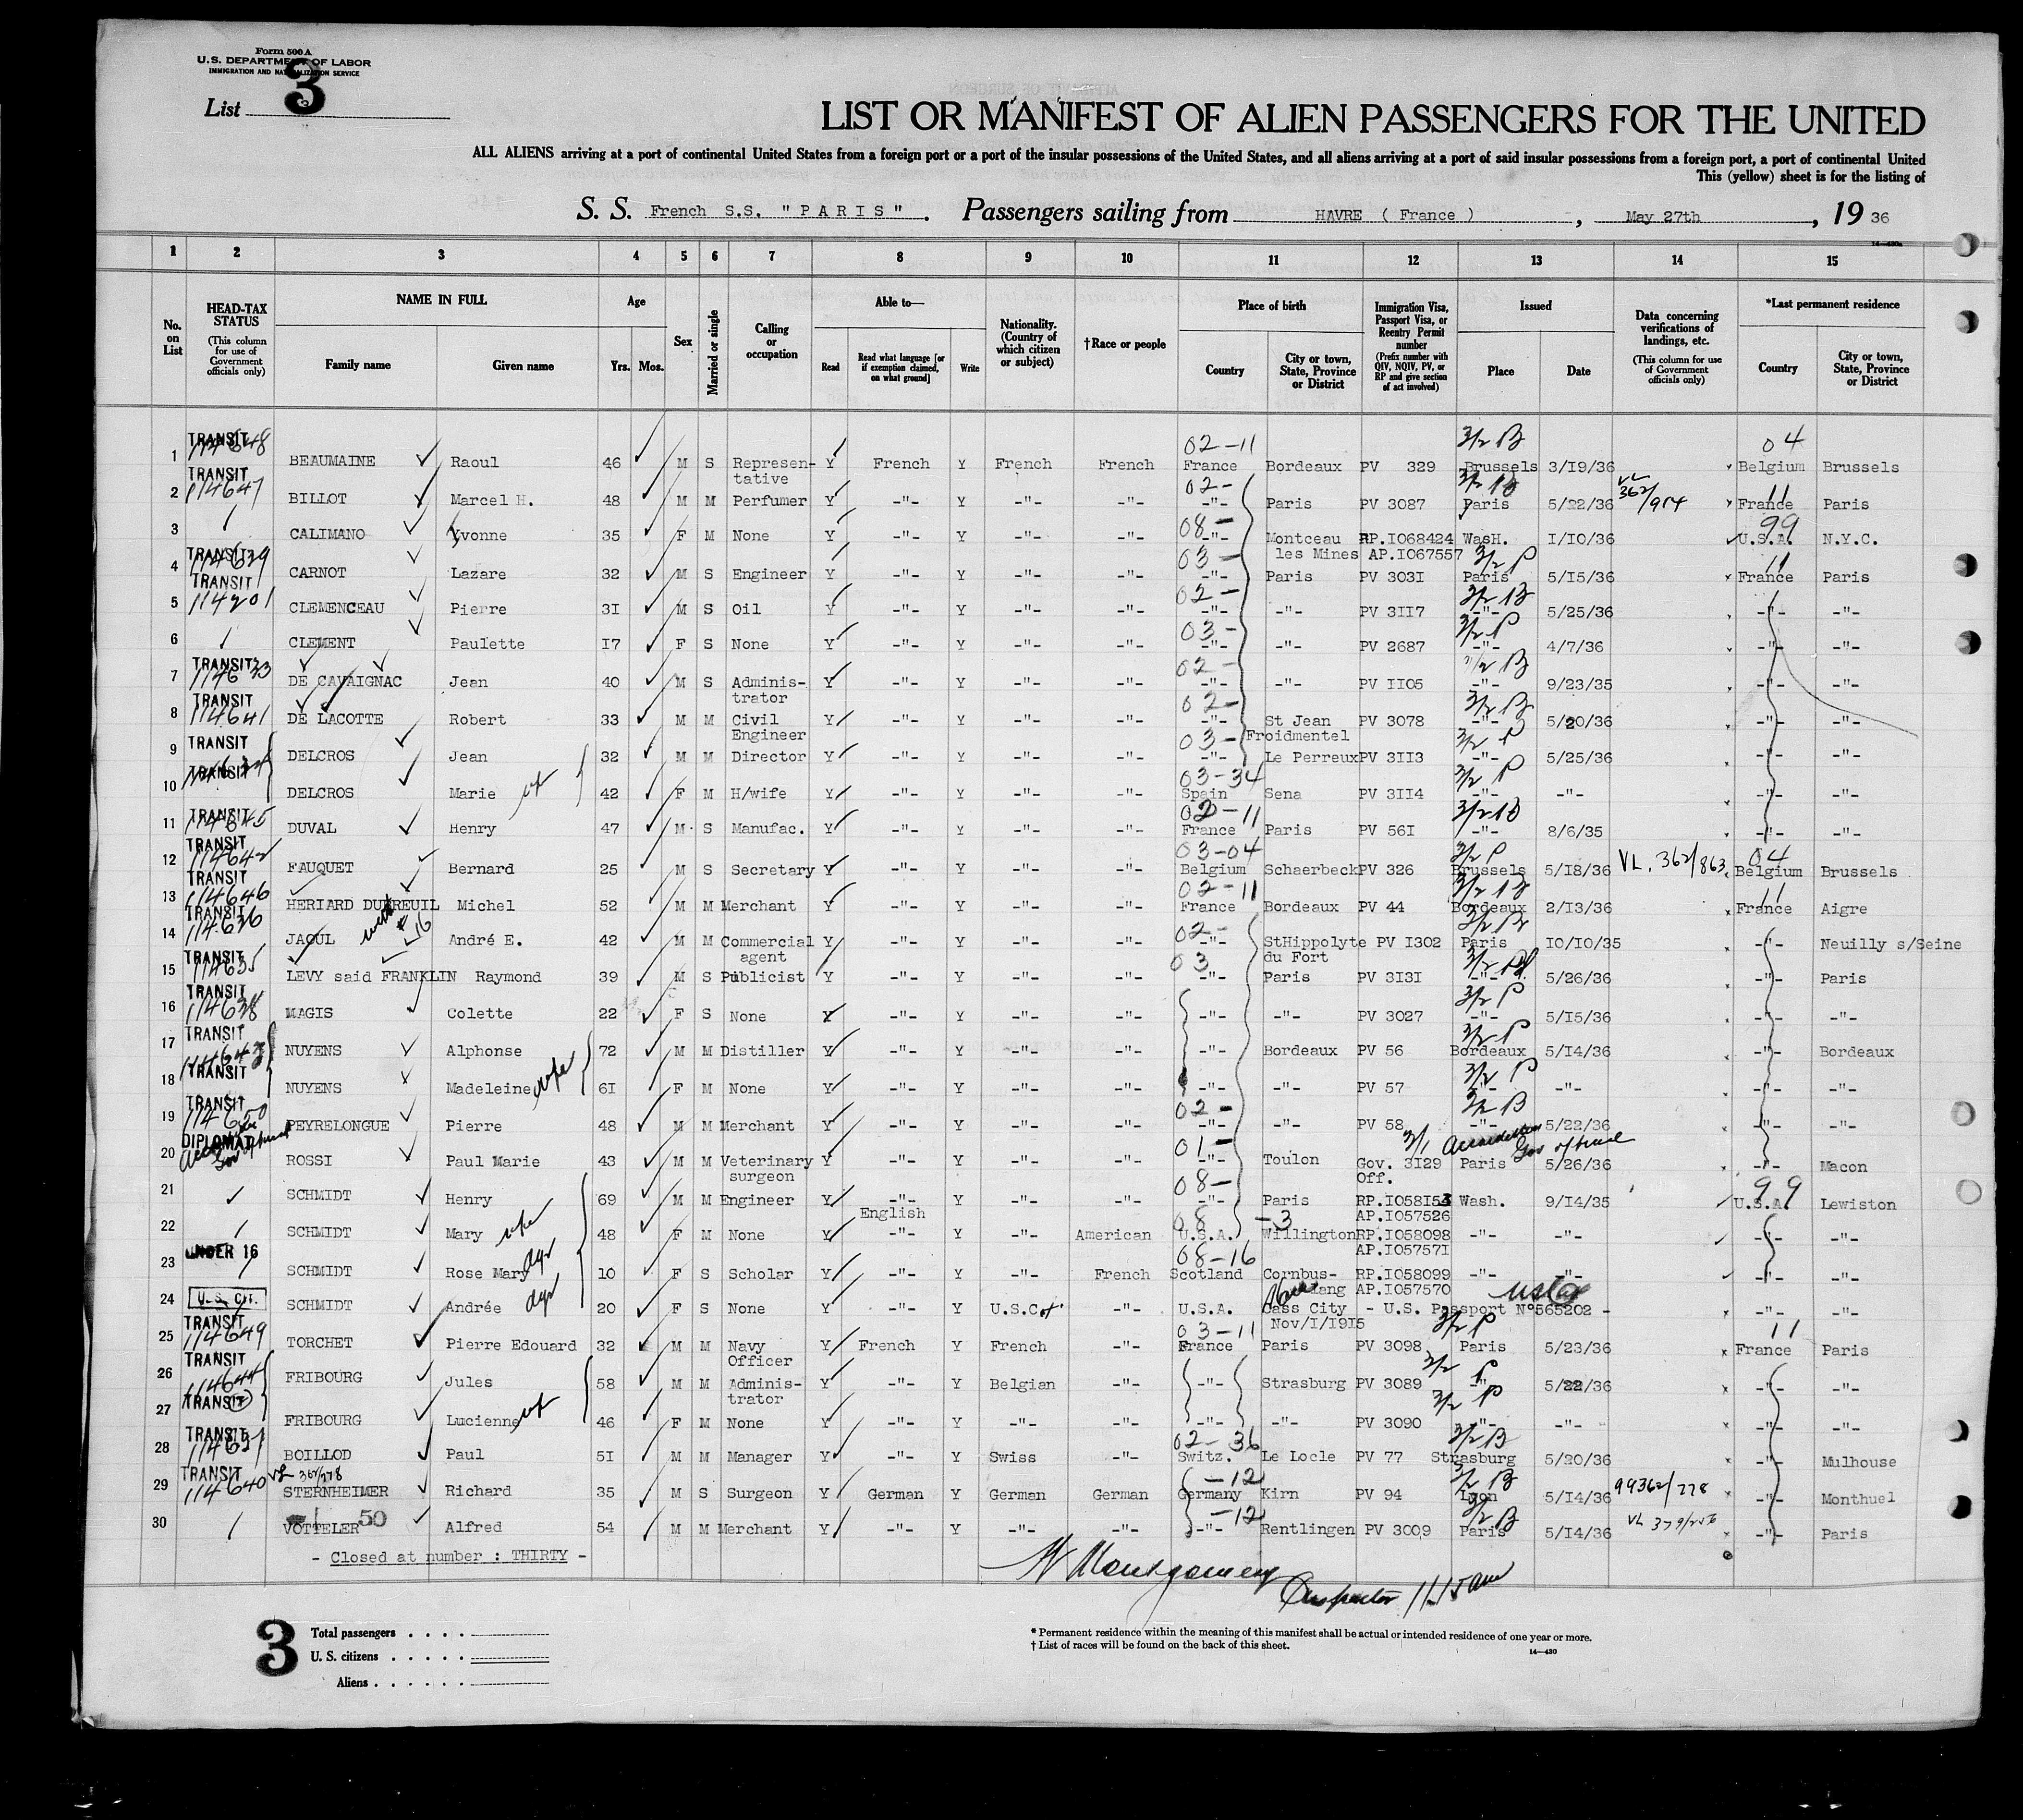 Form 500 A
U. S. DEPARTMENT OF LABOR
IMMIGRATION AND NATURALIZATION SERVICE
List 3
LIST OR MANIFEST OF ALIEN PASSENGERS FOR THE UNITED
ALL ALIENS arriving at a port of continental United States from a foreign port or a port of the insular possessions of the United States, and all aliens arriving at a port of said insular possessions from a foreign port, a port of continental United
This (yellow) sheet is for the listing of
S. S. French S.S. "PARIS". Passengers sailing from HAVRE ( France ), May 27th, 19 36
14—430a
1 2 3 4 5 6 7 8 9 10 11 12 13 14 15
No. on List
HEAD-TAX STATUS (This column for use of Government officials only)
NAME IN FULL Family name Given name
Age Yrs. Mos.
Sex
Married or single
Calling or occupation
Able to— Read Read what language [or if exemption claimed, on what ground] Write
Nationality. (Country of which citizen or subject)
†Race or people
Place of birth Country City or town, State, Province or District
Immigration Visa, Passport Visa, or Reentry Permit number (Prefix number with QIV, NQIV, PV, or RP and give section of act involved)
Issued Place Date
Data concerning verifications of landings, etc. (This column for use of Government officials only)
*Last permanent residence Country City or town, State, Province or District
TRANSIT 114648 02-11 3/2 B 04
1 BEAUMAINE Raoul 46 M S Represen-tative Y French Y French French France Bordeaux PV 329 Brussels 3/19/36 Belgium Brussels
TRANSIT 114647 02- 3/2 B 11
2 BILLOT Marcel H. 48 M M Perfumer Y -"- Y -"- -"- -"- Paris PV 3087 Paris 5/22/36 362/914 France Paris
08- 99
3 CALIMANO Yvonne 35 F M None Y -"- Y -"- -"- -"- Montceau les Mines RP.I068424 AP.I067557 WasH. I/I0/36 U.S.A. N.Y.C.
TRANSIT 114639 03- 3/2 P 11
4 CARNOT Lazare 32 M S Engineer Y -"- Y -"- -"- -"- Paris PV 303I Paris 5/I5/36 France Paris
TRANSIT 114201 02- 3/2 B
5 CLEMENCEAU Pierre 3I M S Oil Y -"- Y -"- -"- -"- -"- PV 3II7 -"- 5/25/36 -"- -"-
03- 3/2 P
6 CLEMENT Paulette I7 F S None Y -"- Y -"- -"- -"- -"- PV 2687 -"- 4/7/36 -"- -"-
TRANSIT 114633 02- 3/2 B
7 DE CAVAIGNAC Jean 40 M S Adminis-trator Y -"- Y -"- -"- -"- -"- PV II05 -"- 9/23/35 -"- -"-
TRANSIT 114641 02- 3/2 B
8 DE LACOTTE Robert 33 M M Civil Engineer Y -"- Y -"- -"- -"- St Jean Froidmentel PV 3078 -"- 5/20/36 -"- -"-
TRANSIT 03- 3/2 P
9 DELCROS Jean 32 M M Director Y -"- Y -"- -"- -"- Le Perreux PV 3II3 -"- 5/25/36 -"- -"-
TRANSIT 03-34 3/2 P
10 DELCROS Marie 42 F M H/wife Y -"- Y -"- -"- Spain Sena PV 3II4 -"- -"- -"- -"-
TRANSIT 114645 02-11 3/2 B
11 DUVAL Henry 47 M S Manufac. Y -"- Y -"- -"- France Paris PV 56I -"- 8/6/35 -"- -"-
TRANSIT 114642 03-04 3/2 P 04
12 FAUQUET Bernard 25 M S Secretary Y -"- Y -"- -"- Belgium Schaerbeck PV 326 Brussels 5/I8/36 VL. 362/863 Belgium Brussels
TRANSIT 114646 02-11 3/2 B 11
13 HERIARD DUTREUIL Michel 52 M M Merchant Y -"- Y -"- -"- France Bordeaux PV 44 Bordeaux 2/I3/36 France Aigre
TRANSIT 114636 02- 3/2 B
14 JAOUL André E. 42 M M Commercial agent Y -"- Y -"- -"- -"- StHippolyte du Fort PV I302 Paris I0/I0/35 -"- Neuilly s/Seine
TRANSIT 114635 03 3/2
15 LEVY said FRANKLIN Raymond 39 M S Publicist Y -"- Y -"- -"- -"- Paris PV 3I3I -"- 5/26/36 -"- Paris
TRANSIT 114638 3/2 P
16 MAGIS Colette 22 F S None Y -"- Y -"- -"- -"- -"- PV 3027 -"- 5/I5/36 -"- -"-
TRANSIT 114643 3/2 P
17 NUYENS Alphonse 72 M M Distiller Y -"- Y -"- -"- -"- Bordeaux PV 56 Bordeaux 5/I4/36 -"- Bordeaux
TRANSIT 3/2 P
18 NUYENS Madeleine wife 6I F M None Y -"- Y -"- -"- -"- -"- PV 57 -"- -"- -"- -"-
TRANSIT 114650 02- 3/2 B
19 PEYRELONGUE Pierre 48 M M Merchant Y -"- Y -"- -"- -"- -"- PV 58 -"- 5/22/36 -"- -"-
DIPLOMAT 01- 3/1
20 ROSSI Paul Marie 43 M M Veterinary surgeon Y -"- Y -"- -"- -"- Toulon Gov. 3I29 Off. Paris 5/26/36 -"- Macon
08- 99
21 SCHMIDT Henry 69 M M Engineer Y -"- Y -"- -"- -"- Paris RP.I058I53 AP.I057526 Wash. 9/I4/35 U.S.A. Lewiston
08 -3
22 SCHMIDT Mary wife 48 F M None Y English -"- Y -"- American U.S.A. Willington RP.I058098 AP.I05757I -"- -"- -"- -"-
UNDER 16 08-16
23 SCHMIDT Rose Mary 10 F S Scholar Y -"- Y -"- French Scotland Cornbus-lang RP.I058099 AP.I057570 -"- -"- -"- -"-
U.S. CIT.
24 SCHMIDT Andrée 20 F S None Y -"- Y U.S.C -"- U.S.A. Cass City Nov/I/I9I5 - U.S. Passport N°565202 - -"- -"-
TRANSIT 114649 03-11 3/2 P 11
25 TORCHET Pierre Edouard 32 M M Navy Officer Y French Y French -"- France Paris PV 3098 Paris 5/23/36 France Paris
TRANSIT 114644 3/2 P
26 FRIBOURG Jules 58 M M Adminis-trator Y -"- Y Belgian -"- -"- Strasburg PV 3089 -"- 5/22/36 -"- -"-
TRANSIT 3/2 P
27 FRIBOURG Lucienne 46 F M None Y -"- Y -"- -"- -"- -"- PV 3090 -"- -"- -"- -"-
TRANSIT 114637 02-36 3/2 B
28 BOILLOD Paul 5I M M Manager Y -"- Y Swiss -"- Switz. Le Locle PV 77 Strasburg 5/20/36 -"- Mulhouse
TRANSIT 114640 -12 3/2 B
29 STERNHEIMER Richard 35 M S Surgeon Y German Y German German Germany Kirn PV 94 Lyon 5/I4/36 99362/778 -"- Monthuel
50 -12 3/2 B
30 VOTTELER Alfred 54 M M Merchant Y -"- Y -"- -"- -"- Rentlingen PV 3009 Paris 5/I4/36 -"- Paris
- Closed at number : THIRTY -
Montgomery Inspector 11.15 am
3
Total passengers . . . .
U. S. citizens . . . . .
Aliens . . . . . .
* Permanent residence within the meaning of this manifest shall be actual or intended residence of one year or more.
† List of races will be found on the back of this sheet.
14—430